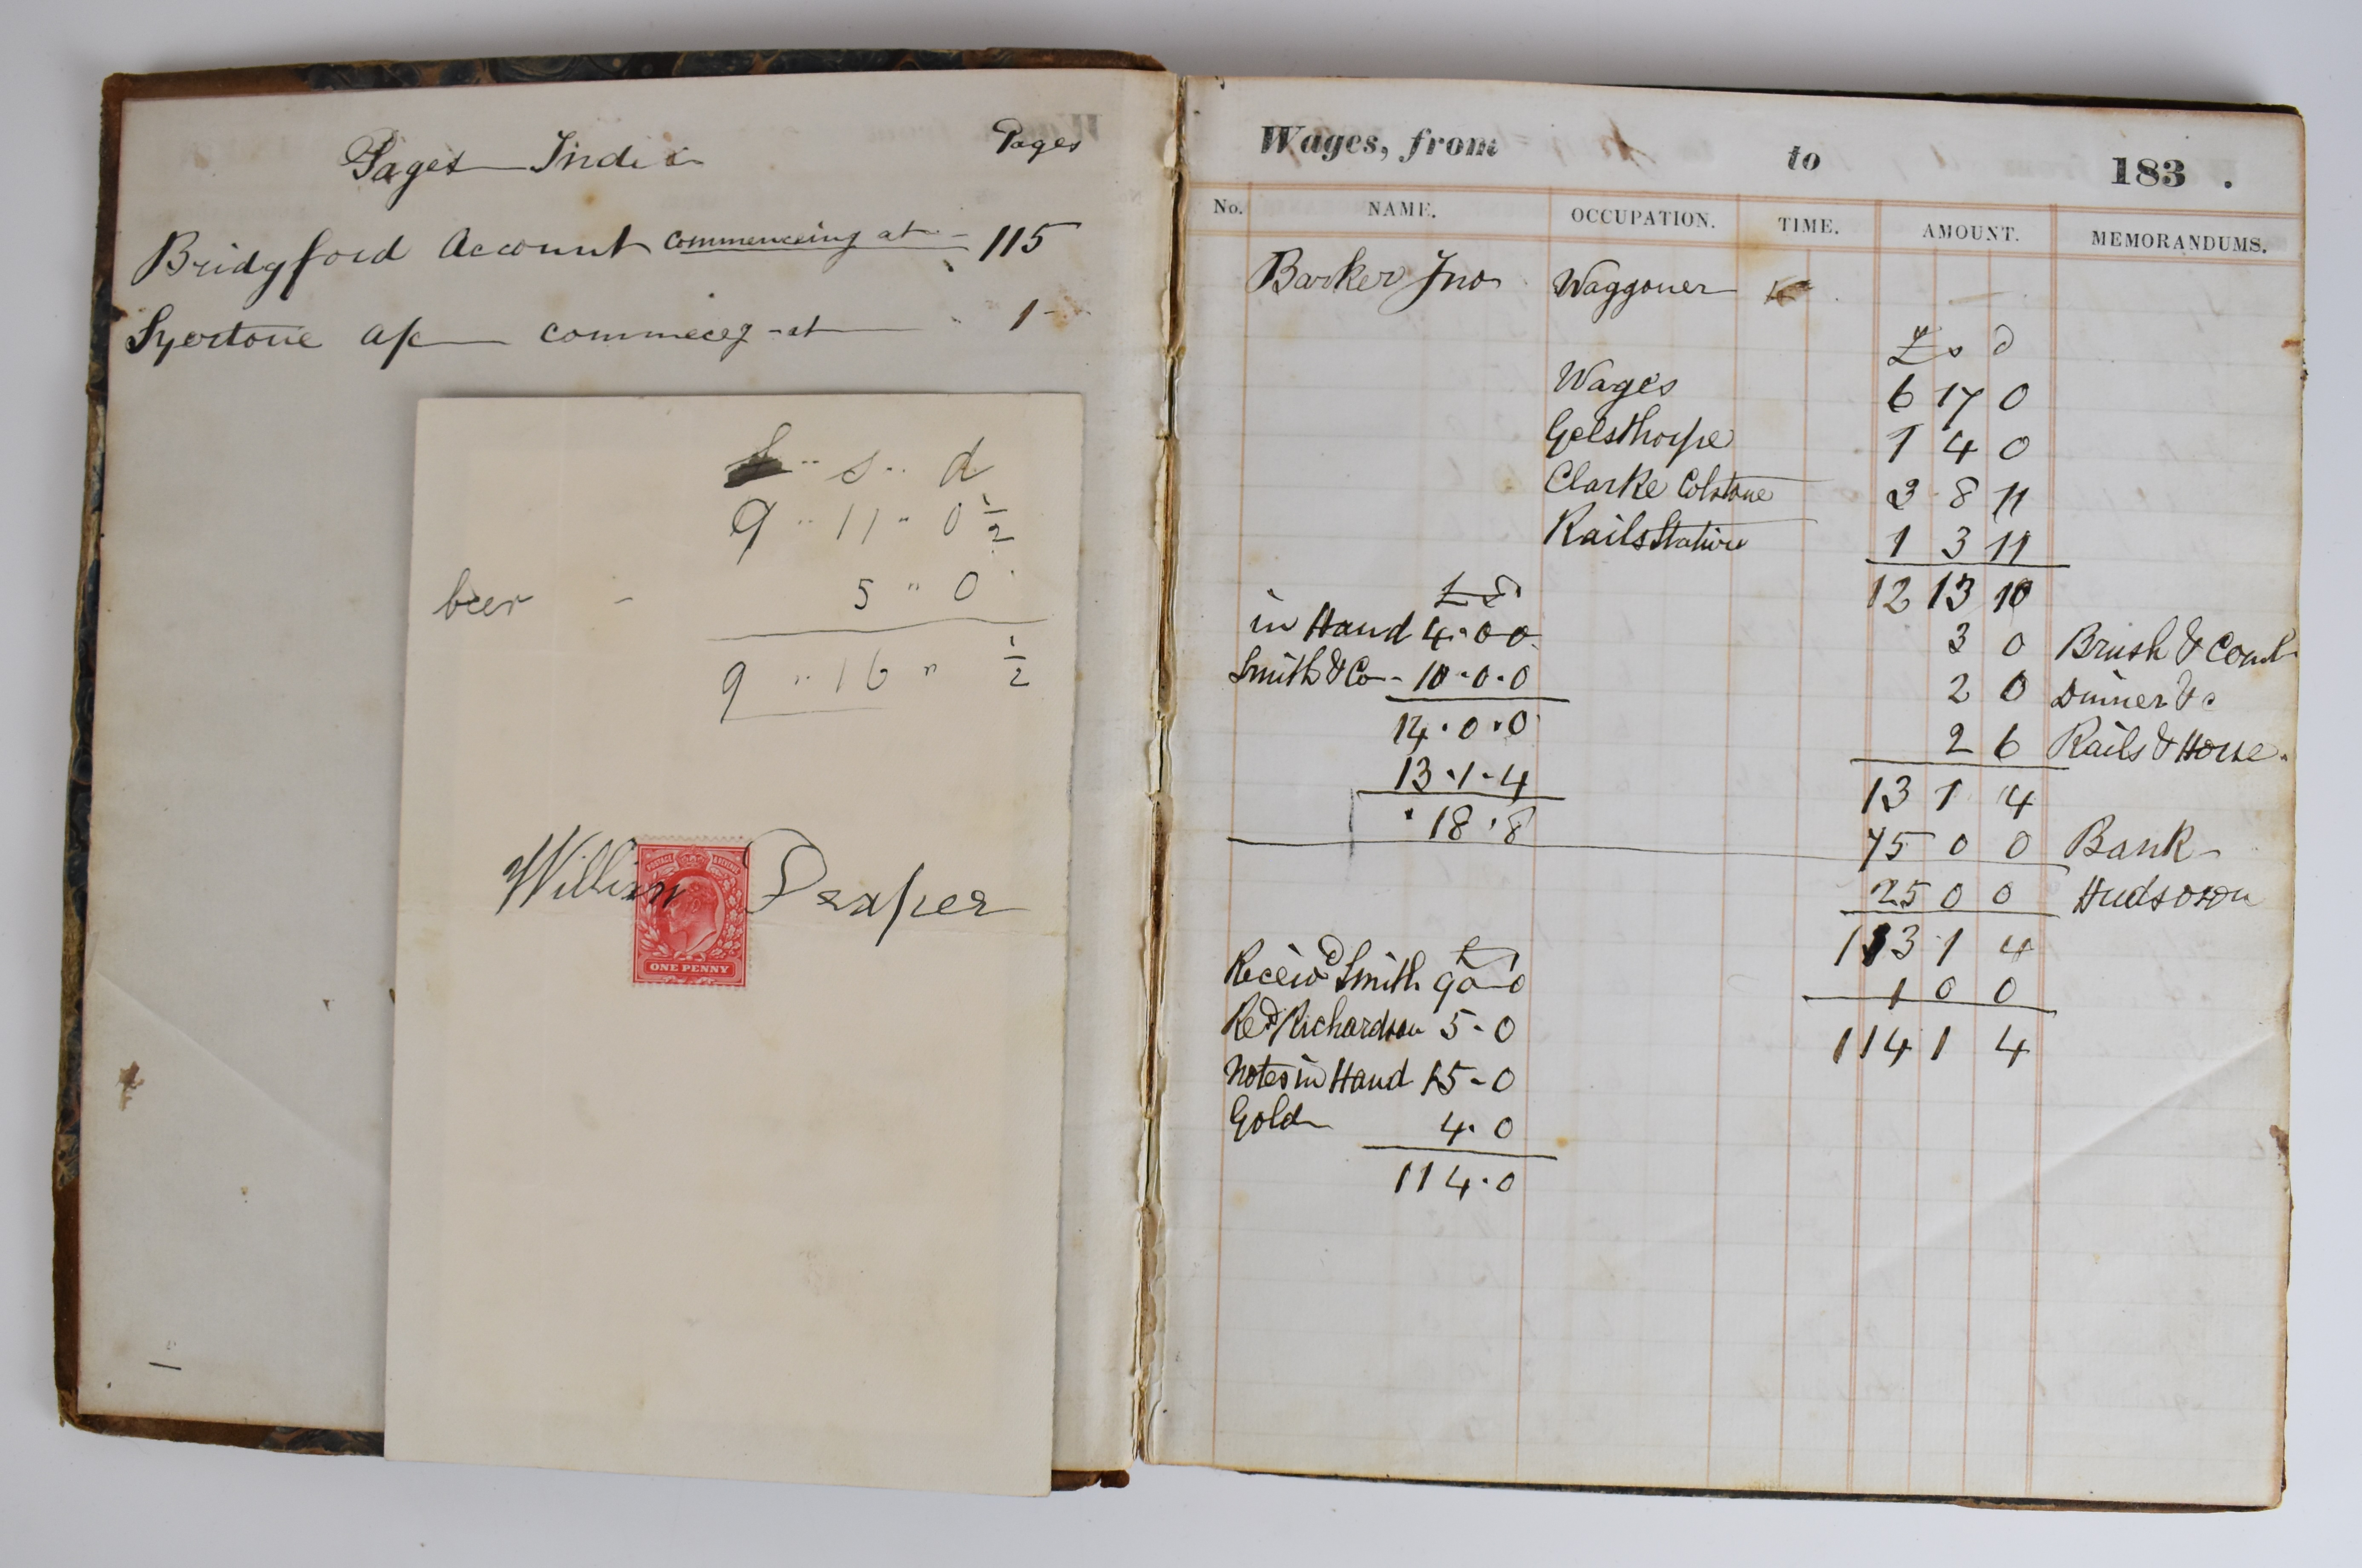 Pages Index Pages
Bridgford Account commenceing at - 115
Syerstone a/c commeceg - at 1 -
£ .. s .. d
9 .. 11 .. 0 1/2
beer - 5 " 0
9 .. 16 " 1/2
William Draper
POSTAGE & REVENUE
ONE PENNY
Wages, from to 183 .
No. NAME. OCCUPATION. TIME. AMOUNT. MEMORANDUMS.
Barker Jno Waggoner
£ s d
Wages 6 17 0
Gelsthorpe 1 4 0
Clarke Colstone 3 8 11
Rails Station 1 3 11
12 13 10
3 0 Brush & Comb
2 0 Dinner &c
2 6 Rails & Horse.
13 1 4
75 0 0 Bank
25 0 0
113 1 4
1 0 0
114 1 4
in Hand 4 . 0 0
Smith & Co - 10 . 0 . 0
14 . 0 . 0
13 . 1 . 4
. 18 . 8
Receivd Smith 90 - 0
Red Richardson 5 - 0
Notes in Hand 15 - 0
Gold 4 . 0
114 . 0